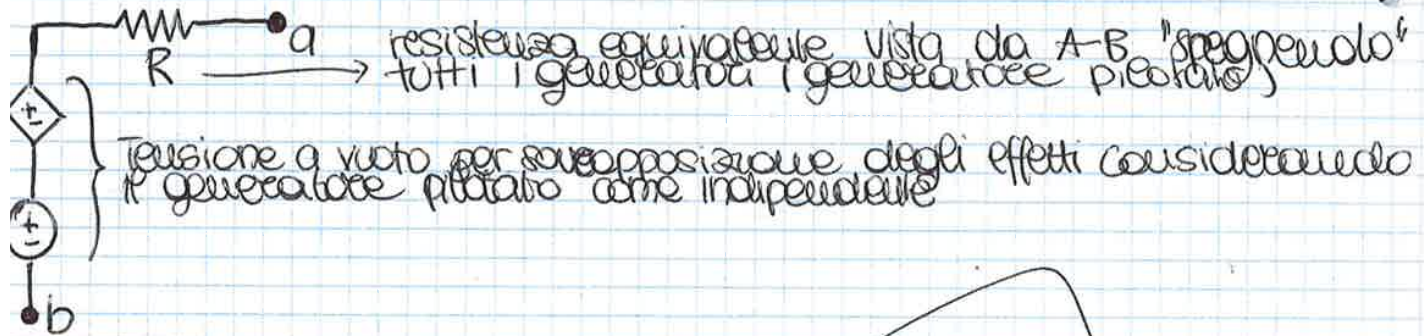 a
R → resistenza equivalente vista da A-B "spegnendo"
tutti i generatori (generatore pilotato)
Tensione a vuoto per sovrapposizione degli effetti considerando
il generatore pilotato come indipendente
b